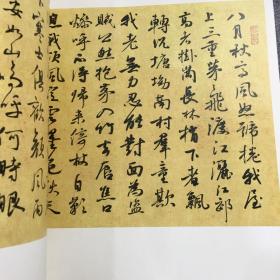 八月秋高風怒號捲我屋
上三重茅飛渡江灑江郊
高者掛罥長林梢下者飄
轉沉塘坳南村群童欺
我老無力忍能對面為盜
賊公然抱茅入竹去唇焦口
燥呼不得歸來倚杖自歎
息俄頃風定雲墨色秋天
寒士俱歡顏風雨
安如山嗚呼何時眼